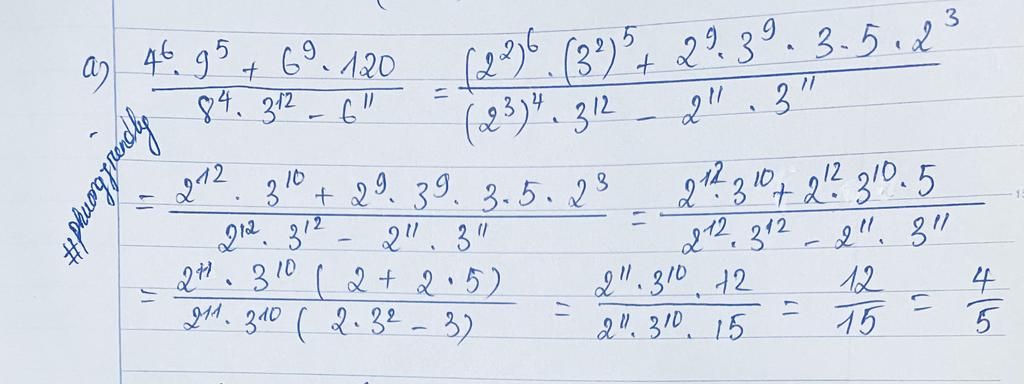 a) \frac{4^6 \cdot 9^5 + 6^9 \cdot 120}{8^4 \cdot 3^{12} - 6^{11}} = \frac{(2^2)^6 \cdot (3^2)^5 + 2^9 \cdot 3^9 \cdot 3 \cdot 5 \cdot 2^3}{(2^3)^4 \cdot 3^{12} - 2^{11} \cdot 3^{11}}
#phuongtrendby
= \frac{2^{12} \cdot 3^{10} + 2^9 \cdot 3^9 \cdot 3 \cdot 5 \cdot 2^3}{2^{12} \cdot 3^{12} - 2^{11} \cdot 3^{11}} = \frac{2^{12} \cdot 3^{10} + 2^{12} \cdot 3^{10} \cdot 5}{2^{12} \cdot 3^{12} - 2^{11} \cdot 3^{11}}
= \frac{2^{11} \cdot 3^{10} (2 + 2 \cdot 5)}{2^{11} \cdot 3^{10} (2 \cdot 3^2 - 3)} = \frac{2^{11} \cdot 3^{10} \cdot 12}{2^{11} \cdot 3^{10} \cdot 15} = \frac{12}{15} = \frac{4}{5}